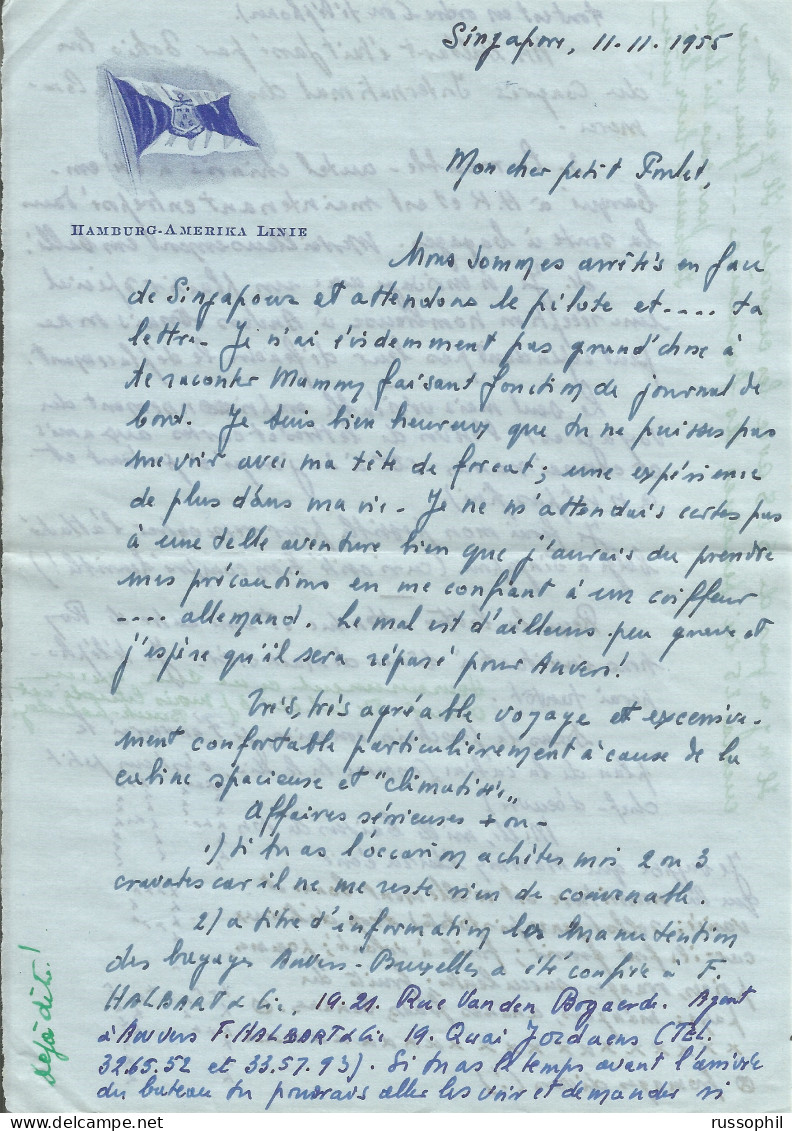 Singapore, 11.11.1955
HAMBURG-AMERIKA LINIE
Mon cher petit Poulet,
Nous sommes arrêtés en face
de Singapour et attendons le pilote et.... ta
lettre. Je n'ai évidemment pas grand'chose à
te raconter Mammy faisant fonction de journal de
bord. Je suis bien heureux que tu ne puisses pas
me voir avec ma tête de forcat; une expérience
de plus dans ma vie. Je ne m'attendais certes pas
à une telle aventure bien que j'aurais du prendre
mes précautions en me confiant à un coiffeur
.... allemand. Le mal est d'ailleurs peu grave et
j'espère qu'il sera réparé pour Anvers!
Très, très agréable voyage et excessive-
ment confortable particulièrement à cause de la
cabine spacieuse et "climatisée"
Affaires sérieuses + ou -
1) Si tu as l'occasion achètes moi 2 ou 3
cravates car il ne me reste rien de convenable.
2) a titre d'information la manutention
des bagages Anvers-Bruxelles a été confiée à F.
HALBART & Cie, 19.21. Rue Vanden Bogaerde. Agent
à Anvers F. HALBART & Cie 19. Quai Jordaens (TEL.
32.65.52 et 33.57.93). Si tu as le temps avant l'arrivée
du bateau tu pourrais aller les voir et demander si
déjà dit!